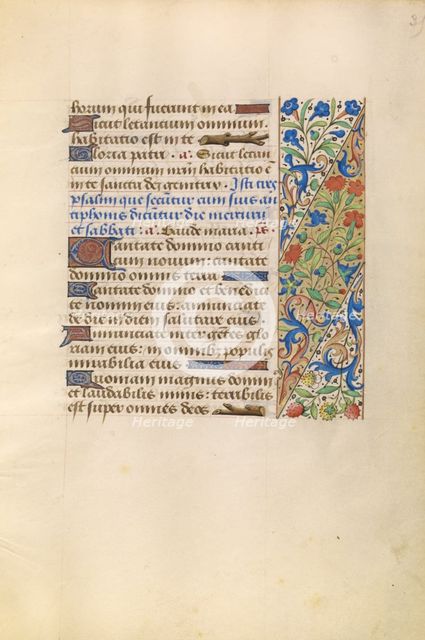 horum qui fuerunt in ea
Sicut letancium omnium
habitatio est in te
Gloria patri. a. Sicut letan
cium omnium nrm̄ habitatio e
in te sancta dei genitrix. Isti tres
psalmi que secūtur cum suis an
tiphonis dicūtur die mercurii
et sabbati. a. Gaude maria. ps.
Cantate domino canti
cum novum cantate
domino omnis terra
Cantate domino et benedic
te nomini eius: annunciate
de die in diem salutare eius
Annunciate inter gētes glo
riam eius: in omnibꝫ populis
mirabilia eius
Quoniam magnus domin
et laudabilis nimis: terribilis
est super omnes deos
Heritage
Heritage
Heritage
Heritage